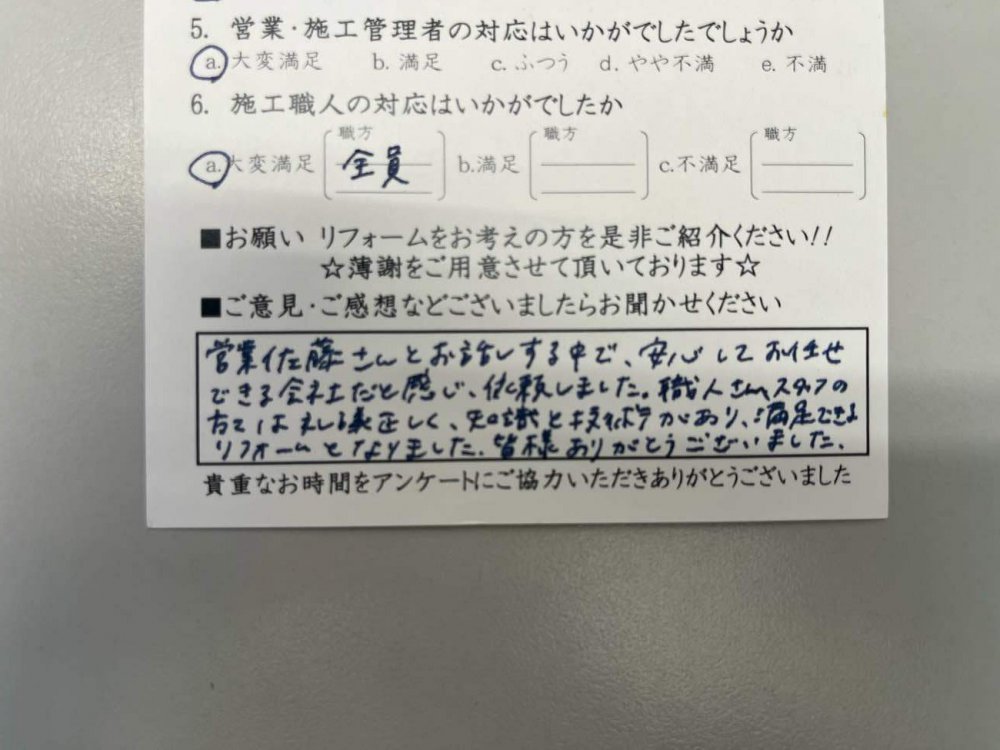 5. 営業・施工管理者の対応はいかがでしたでしょうか
a. 大変満足 b. 満足 c. ふつう d. やや不満 e. 不満
6. 施工職人の対応はいかがでしたか
職方 職方 職方
a. 大変満足 全員 b.満足 c.不満足
■お願い リフォームをお考えの方を是非ご紹介ください!!
☆薄謝をご用意させて頂いております☆
■ご意見・ご感想などございましたらお聞かせください
営業佐藤さんとお話しする中で、安心してお任せ
できる会社だと感じ、依頼しました。職人さん、スタッフの
方々は礼儀正しく、知識と技術があり、満足できる
リフォームとなりました。皆様ありがとうございました。
貴重なお時間をアンケートにご協力いただきありがとうございました